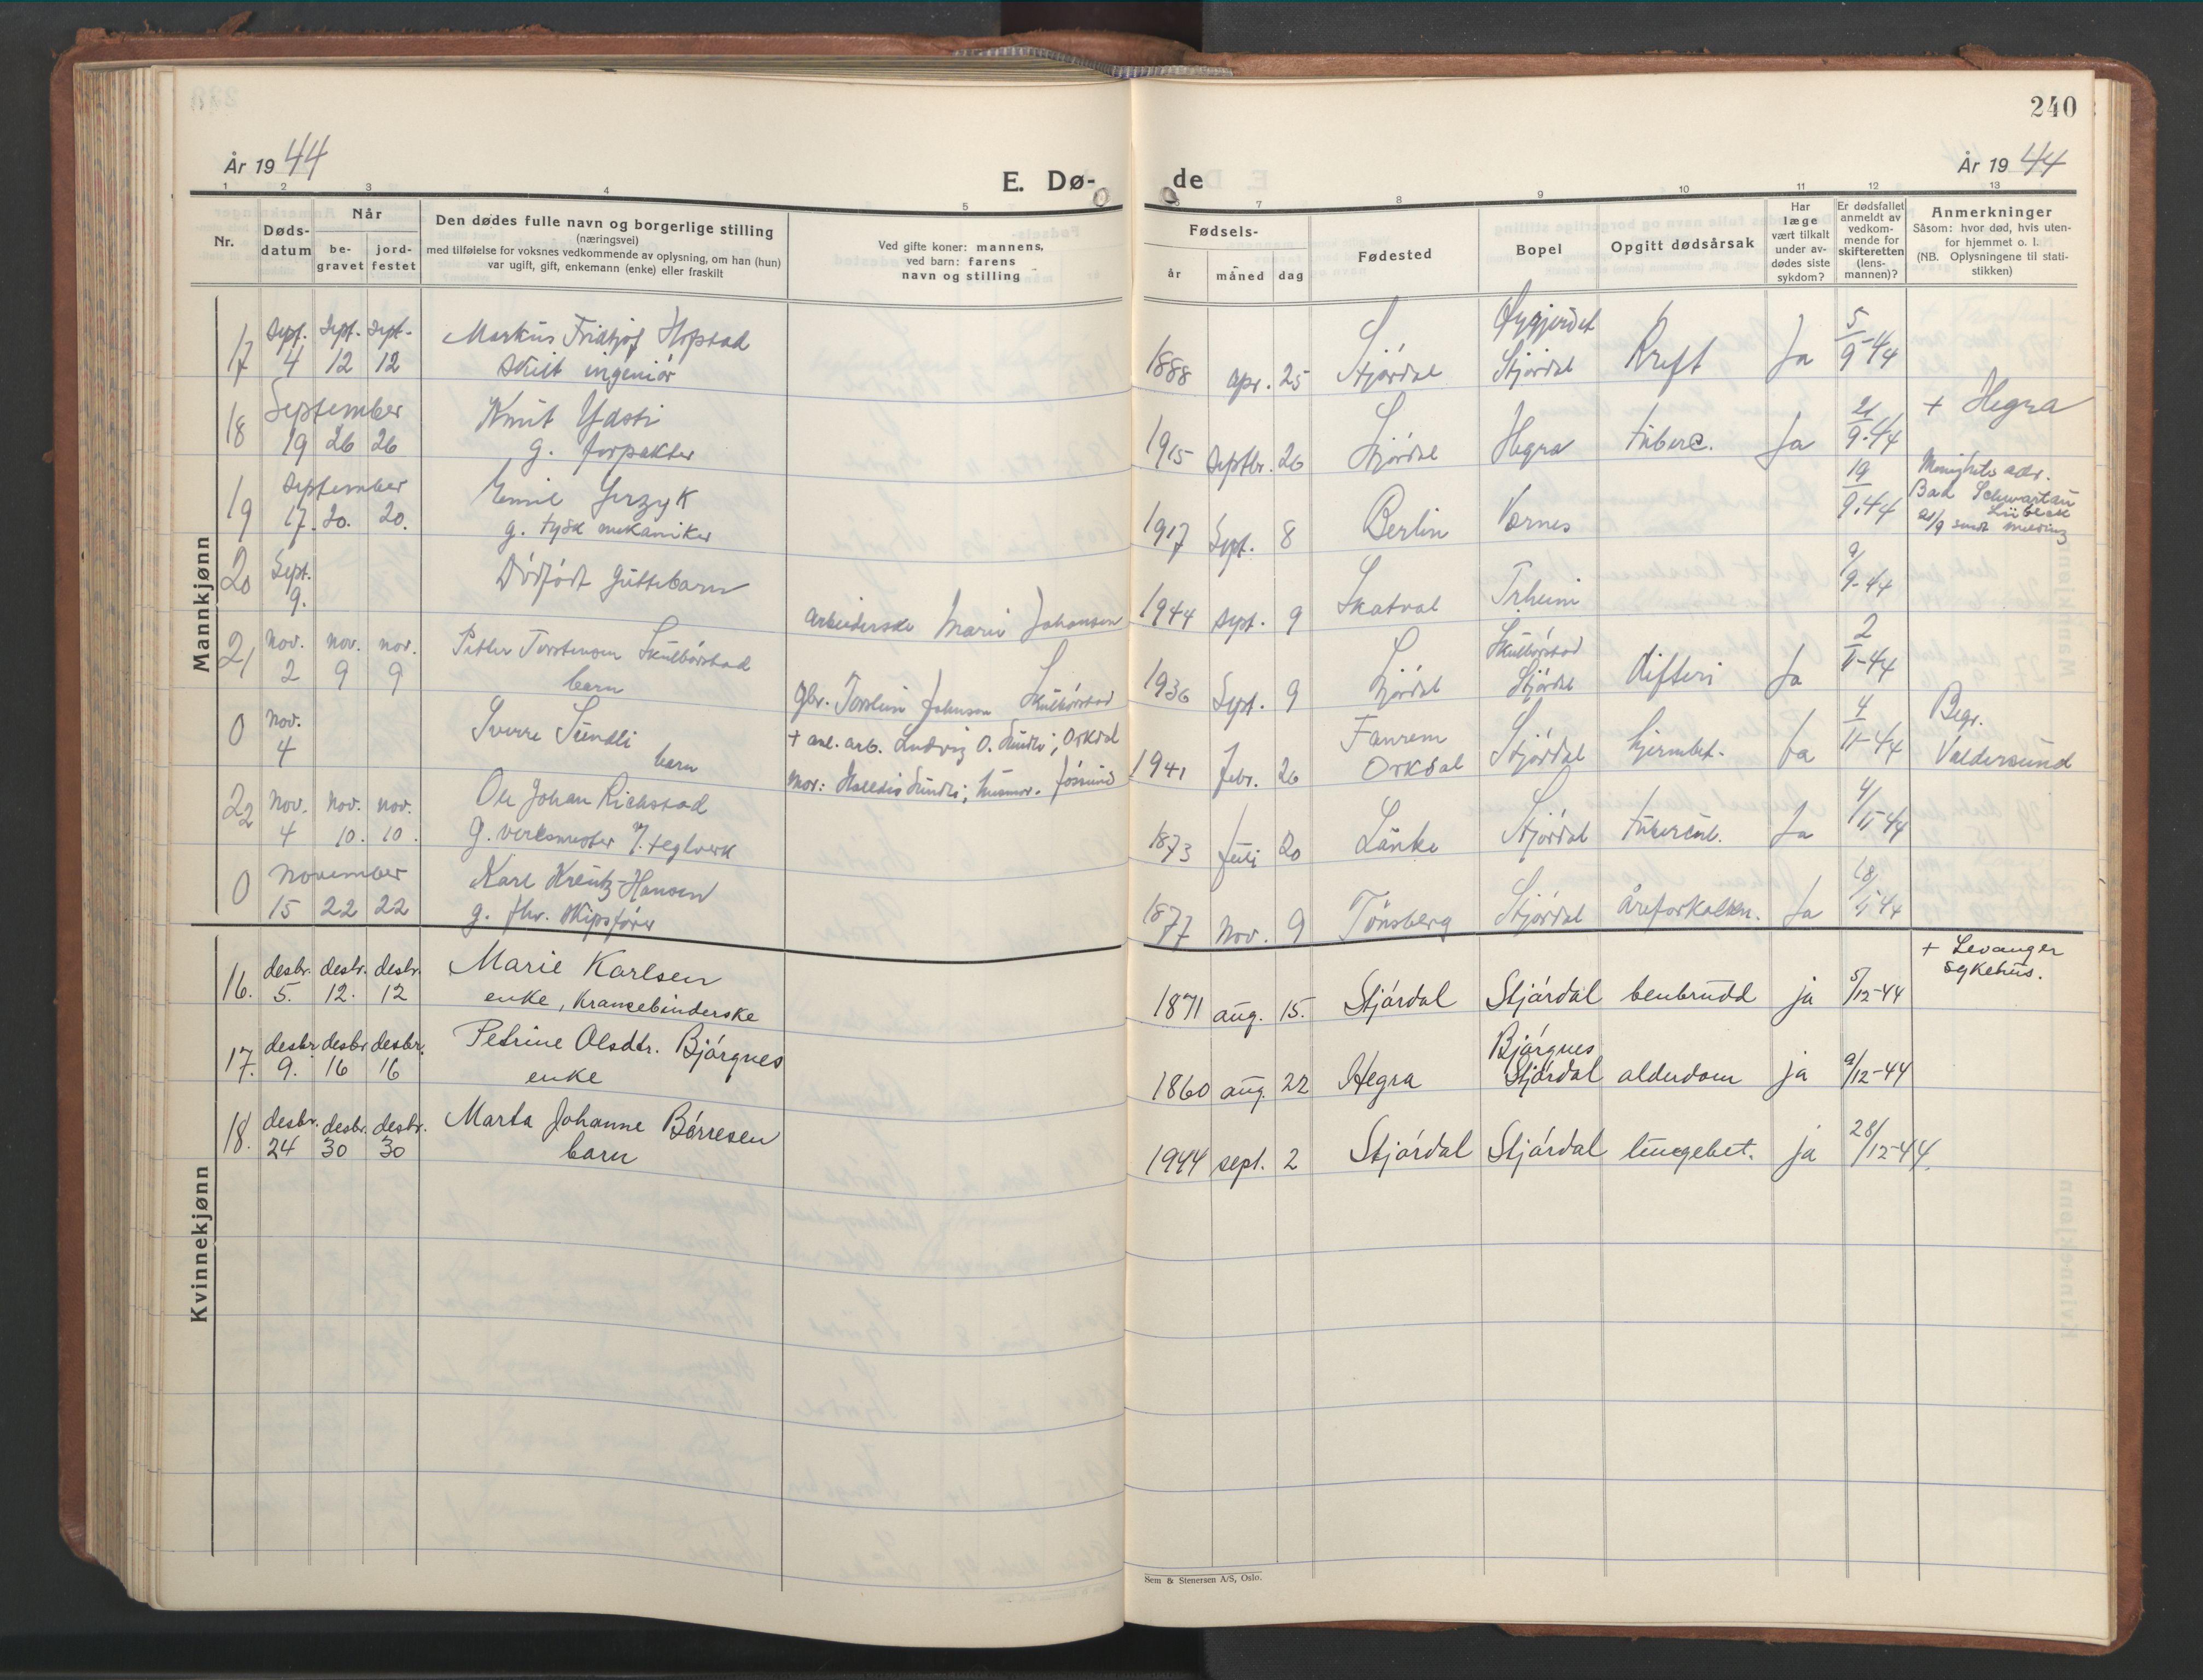 240
År 1944
E. Dø-
de
År 1944
1 2 3 4 5 6 7 8 9 10 11 12 13
Nr.
Døds-
datum
Når
be-
gravet
jord-
festet
Den dødes fulle navn og borgerlige stilling
(næringsvei)
med tilføielse for voksnes vedkommende av oplysning, om han (hun)
var ugift, gift, enkemann (enke) eller fraskilt
Ved gifte koner: mannens,
ved barn: farens
navn og stilling
Fødsels-
år
måned
dag
Fødested
Bopel
Opgitt dødsårsak
Har
læge
vært tilkalt
under av-
dødes siste
sykdom?
Er dødsfallet
anmeldt av
vedkom-
mende for
skifteretten
(lens-
mannen)?
Anmerkninger
Såsom: hvor død, hvis uten-
for hjemmet o. l.
(NB. Oplysningene til stati-
stikken)
Mannkjønn
17 Sept. 4 Sept. 12 Sept. 12
Markus Fridtjof Hopstad
skilt ingeniör
1888 apr. 25 Stjørdal Øygjerdet Stjørdal Kreft Ja 5/9-44
18 September 19 26 26
Knut Ydsti
g. forpakter
1915 Septbr. 26 Stjørdal Hegra tuberc. Ja 21/9-44 + Hegra
19 September 17. 20. 20.
Emil Jerzyk
g. tysk mekaniker
1917 Sept. 8 Berlin Værnes 19/9.44
Menighets adr.
Bad Schwartau
Lübeck
21/9 sendt melding
20 Sept. 9.
Dödfödt guttebarn
arbeiderske Marie Johansen
1944 Sept. 9 Skatval Trheim 9/9-44
21 nov. 2 nov. 9 nov. 9
Petter Torsteinsen Skulbörstad
barn
gbr. Torstein Johnsen Skulbörstad
1936 Sept. 9 Stjørdal Skulbörstad Stjørdal difteri Ja 2/11-44
0 nov. 4
Sverre Sundli
barn
+ anl. arb. Ludvig O. Sundli, Orkdal
Mor: Halldis Sundli; husmor. Jössund
1941 Febr. 26 Fanrem Orkdal Stjørdal hjernebet. Ja 4/11-44
Begr.
Valdersund
22 nov. 4 nov. 10. nov. 10.
Ole Johan Richstad
g. verksmester v/ teglverk
1873 Juli 20 Lånke Stjørdal tubercul. Ja 4/11-44
0 november 15 22 22
Karl Kreutz-Hansen
g. fhv. skipsfører
1877 Nov. 9 Tönsberg Stjørdal Åreforkalkn. Ja 18/11 44
Kvinnekjønn
16. desbr. 5. desbr. 12. desbr. 12
Marie Karlsen
enke, kransebinderske
1871 aug. 15. Stjørdal Stjørdal benbrudd ja 5/12-44
+ Levanger
sykehus.
17. desbr. 9. desbr. 16 desbr. 16
Petrine Olsdtr. Bjørgnes
enke
1860 aug. 22 Hegra Bjørgnes Stjørdal alderdom ja 9/12-44
18. desbr. 24 desbr. 30 desbr. 30
Marta Johanne Børresen
barn
1944 sept. 2 Stjørdal Stjørdal lungebet. ja 28/12-44.
Sem & Stenersen A/S, Oslo.